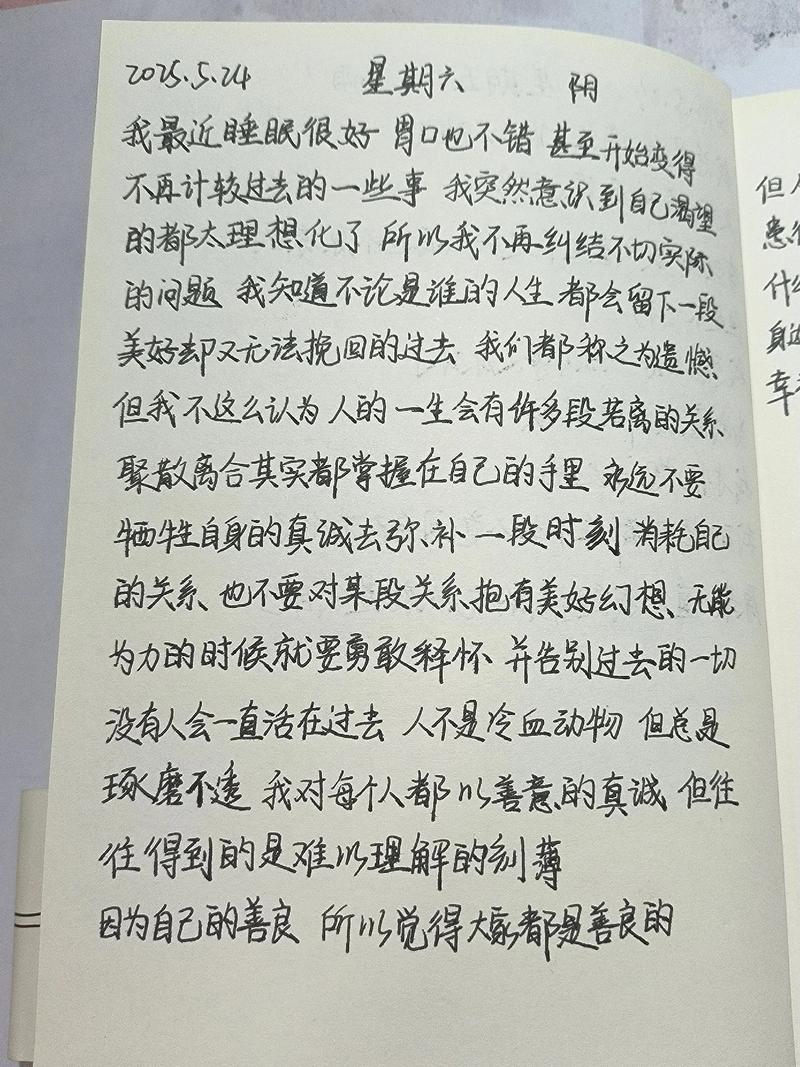 2025.5.24 星期六 阴
我最近睡眠很好 胃口也不错 甚至开始变得
不再计较过去的一些事 我突然意识到自己渴望
的都太理想化了 所以我不再纠结不切实际
的问题 我知道不论是谁的人生 都会留下一段
美好却又无法挽回的过去 我们都称之为遗憾
但我不这么认为 人的一生会有许多段若离的关系
聚散离合其实都掌握在自己的手里 永远不要
牺牲自身的真诚去弥补 一段时刻 消耗自己
的关系 也不要对某段关系抱有美好幻想 无能
为力的时候就要勇敢释怀 并告别过去的一切
没有人会一直活在过去 人不是冷血动物 但总是
琢磨不透 我对每个人都以善意的真诚 但往
往得到的是难以理解的刻薄
因为自己的善良 所以觉得大家都是善良的
但
什么
身边
幸